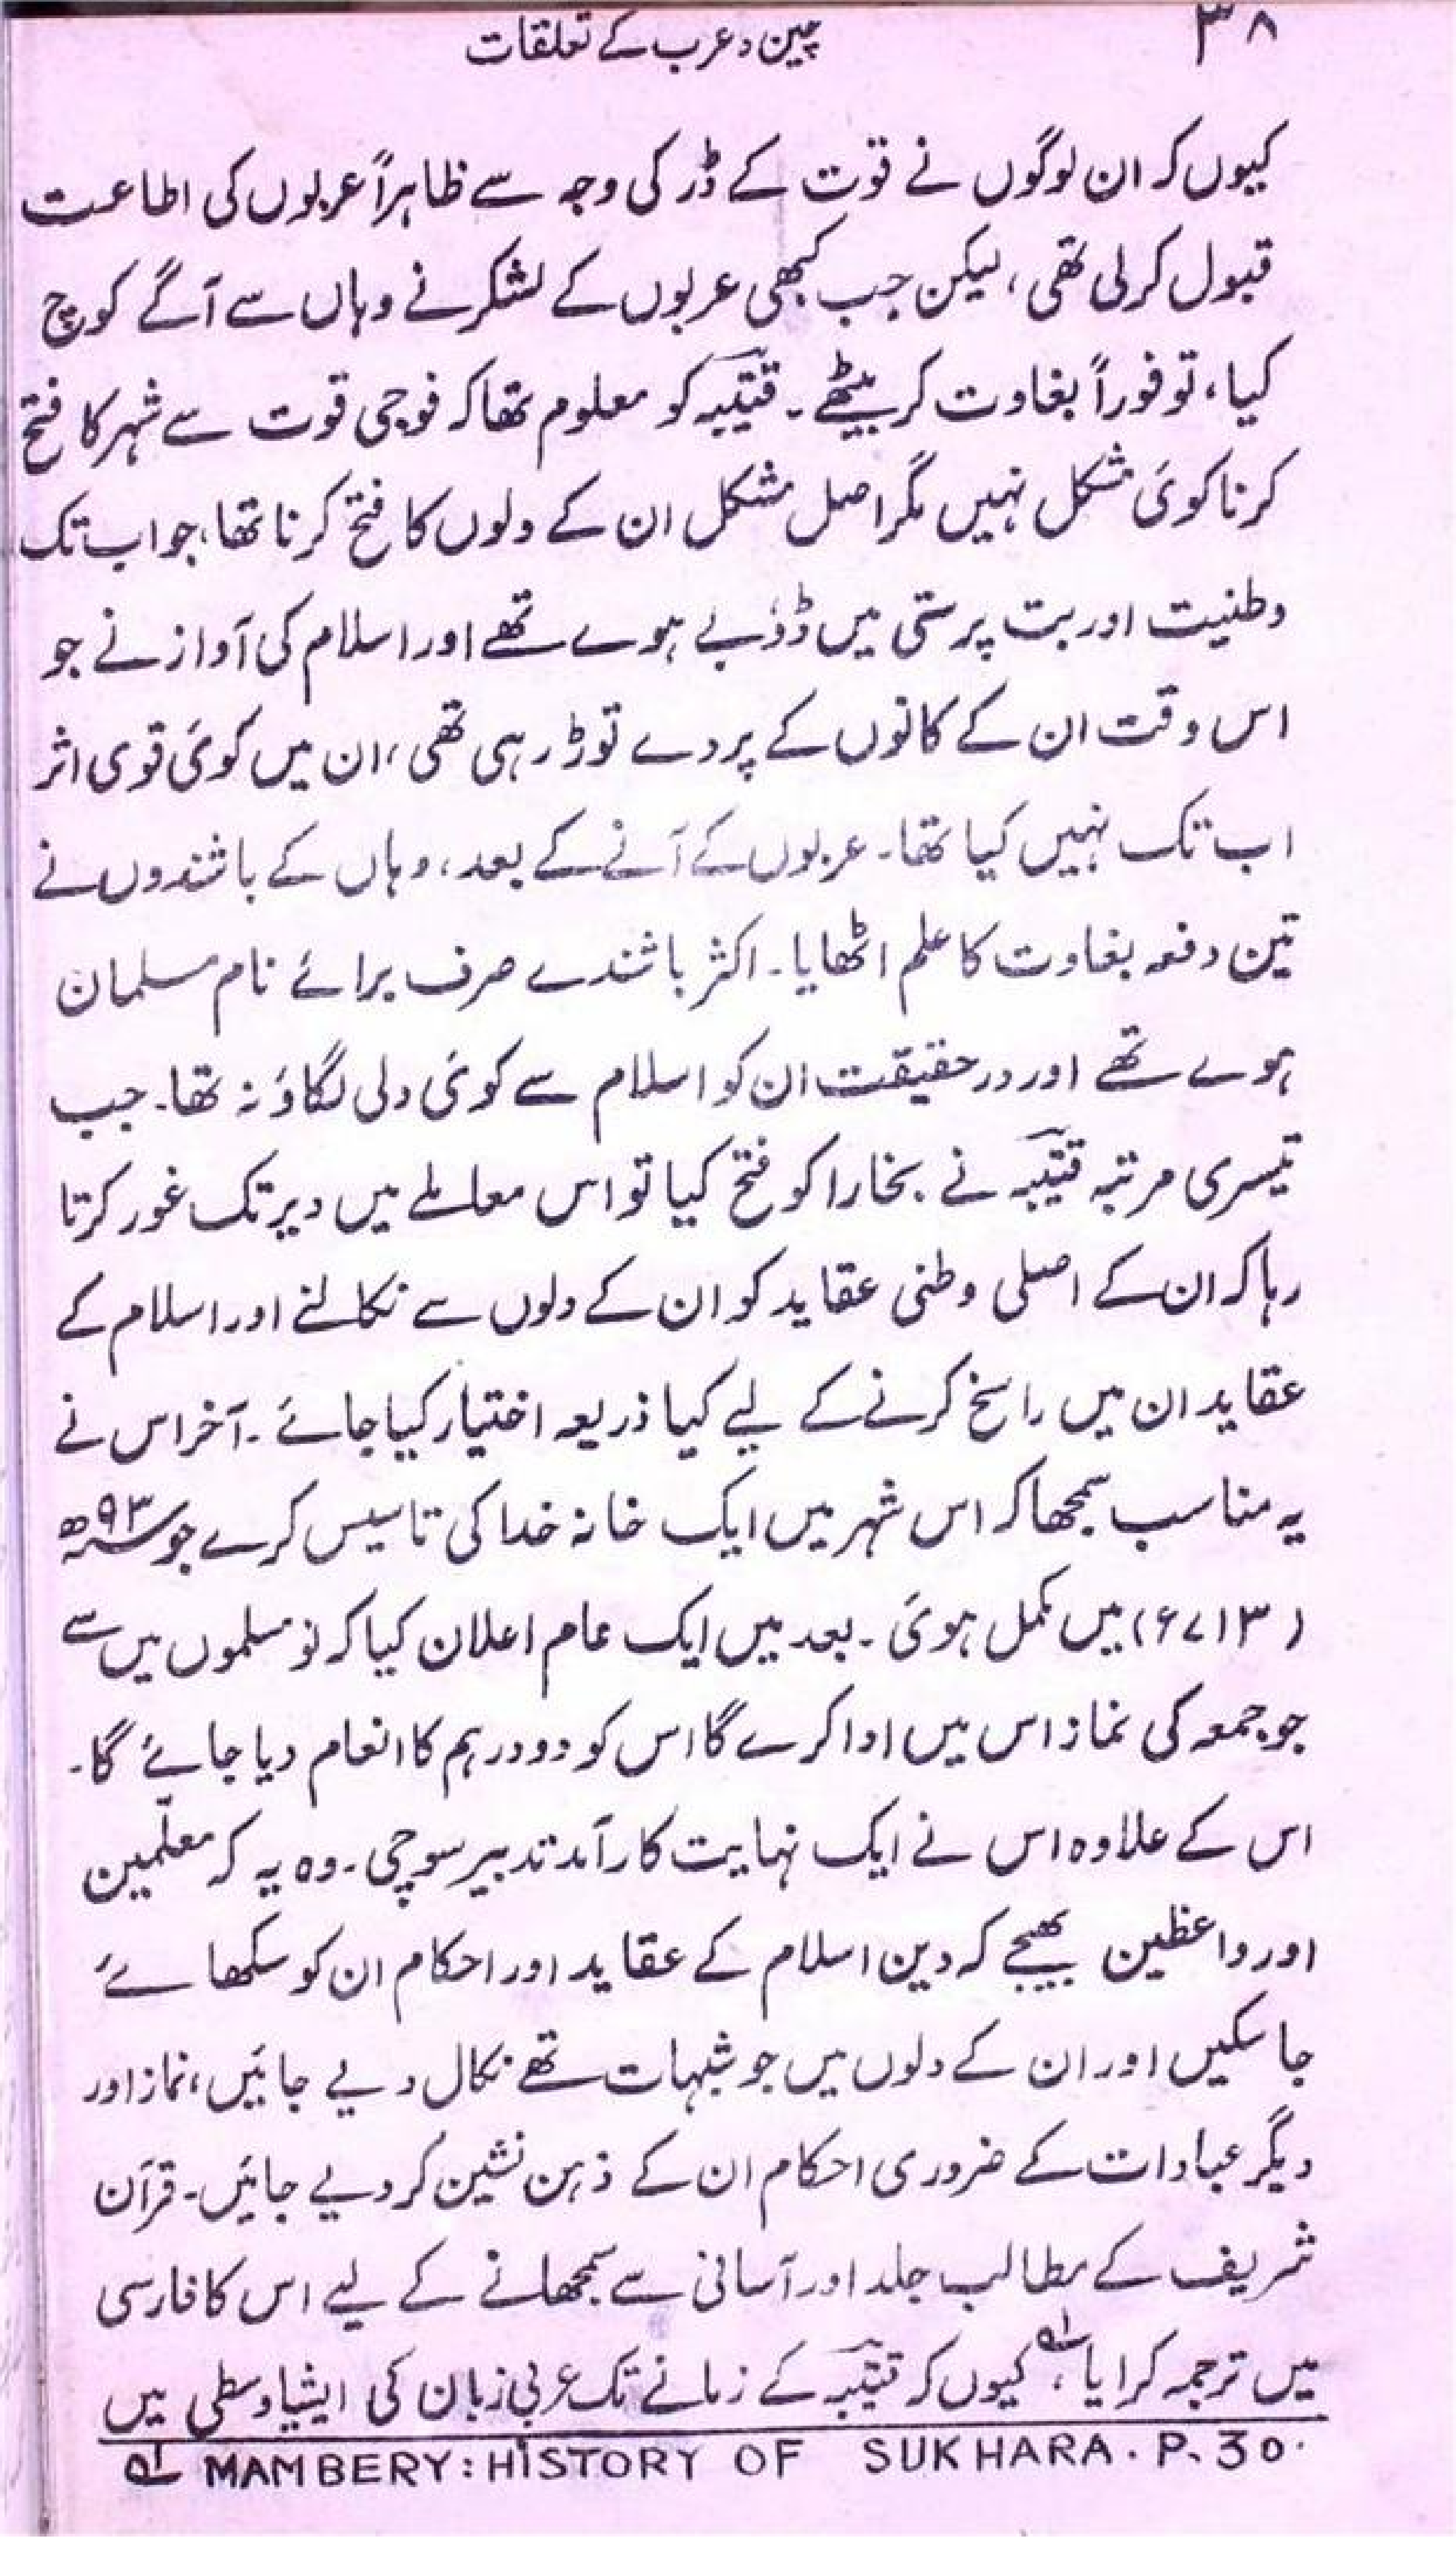 ۳۸
چین و عرب کے تعلقات
کیوں کہ ان لوگوں نے قوت کے ڈر کی وجہ سے ظاہراً عربوں کی اطاعت
قبول کرلی تھی، لیکن جب کبھی عربوں کے لشکر نے وہاں سے آگے کوچ
کیا، تو فوراً بغاوت کر بیٹھے۔ قتیبہ کو معلوم تھا کہ فوجی قوت سے شہر کا فتح
کرنا کوئی مشکل نہیں مگر اصل مشکل ان کے دلوں کا فتح کرنا تھا، جو اب تک
وطنیت اور بت پرستی میں ڈوبے ہوے تھے اور اسلام کی آواز نے جو
اس وقت ان کے کانوں کے پردے توڑ رہی تھی، ان میں کوئی قوی اثر
اب تک نہیں کیا تھا۔ عربوں کے آنے کے بعد، وہاں کے باشندوں نے
تین دفعہ بغاوت کا علم اٹھایا۔ اکثر باشندے صرف برائے نام مسلمان
ہوے تھے اور درحقیقت ان کو اسلام سے کوئی دلی لگاؤ نہ تھا۔ جب
تیسری مرتبہ قتیبہ نے بخارا کو فتح کیا تو اس معاملے میں دیر تک غور کرتا
رہا کہ ان کے اصلی وطنی عقاید کو ان کے دلوں سے نکالنے اور اسلام کے
عقاید ان میں راسخ کرنے کے لیے کیا ذریعہ اختیار کیا جائے۔ آخر اس نے
یہ مناسب سمجھا کہ اس شہر میں ایک خانہ خدا کی تاسیس کرے جو ۹۳ھ
(۷۱۳ء) میں مکمل ہوئی۔ بعد میں ایک عام اعلان کیا کہ نومسلموں میں سے
جو جمعہ کی نماز اس میں ادا کرے گا اس کو دو درہم کا انعام دیا جائے گا۔
اس کے علاوہ اس نے ایک نہایت کارآمد تدبیر سوچی۔ وہ یہ کہ معلّمین
اور واعظین بھیجے کہ دین اسلام کے عقاید اور احکام ان کو سکھائے
جاسکیں اور ان کے دلوں میں جو شبہات تھے نکال دیے جائیں، نماز اور
دیگر عبادات کے ضروری احکام ان کے ذہن نشین کر دیے جائیں۔ قرآن
شریف کے مطالب جلد اور آسانی سے سمجھانے کے لیے اس کا فارسی
میں ترجمہ کرایا ؎۱، کیوں کہ قتیبہ کے زمانے تک عربی زبان کی ایشیا وسطی میں
؎۱ MAMBERY: HISTORY OF SUKHARA. P. 30.